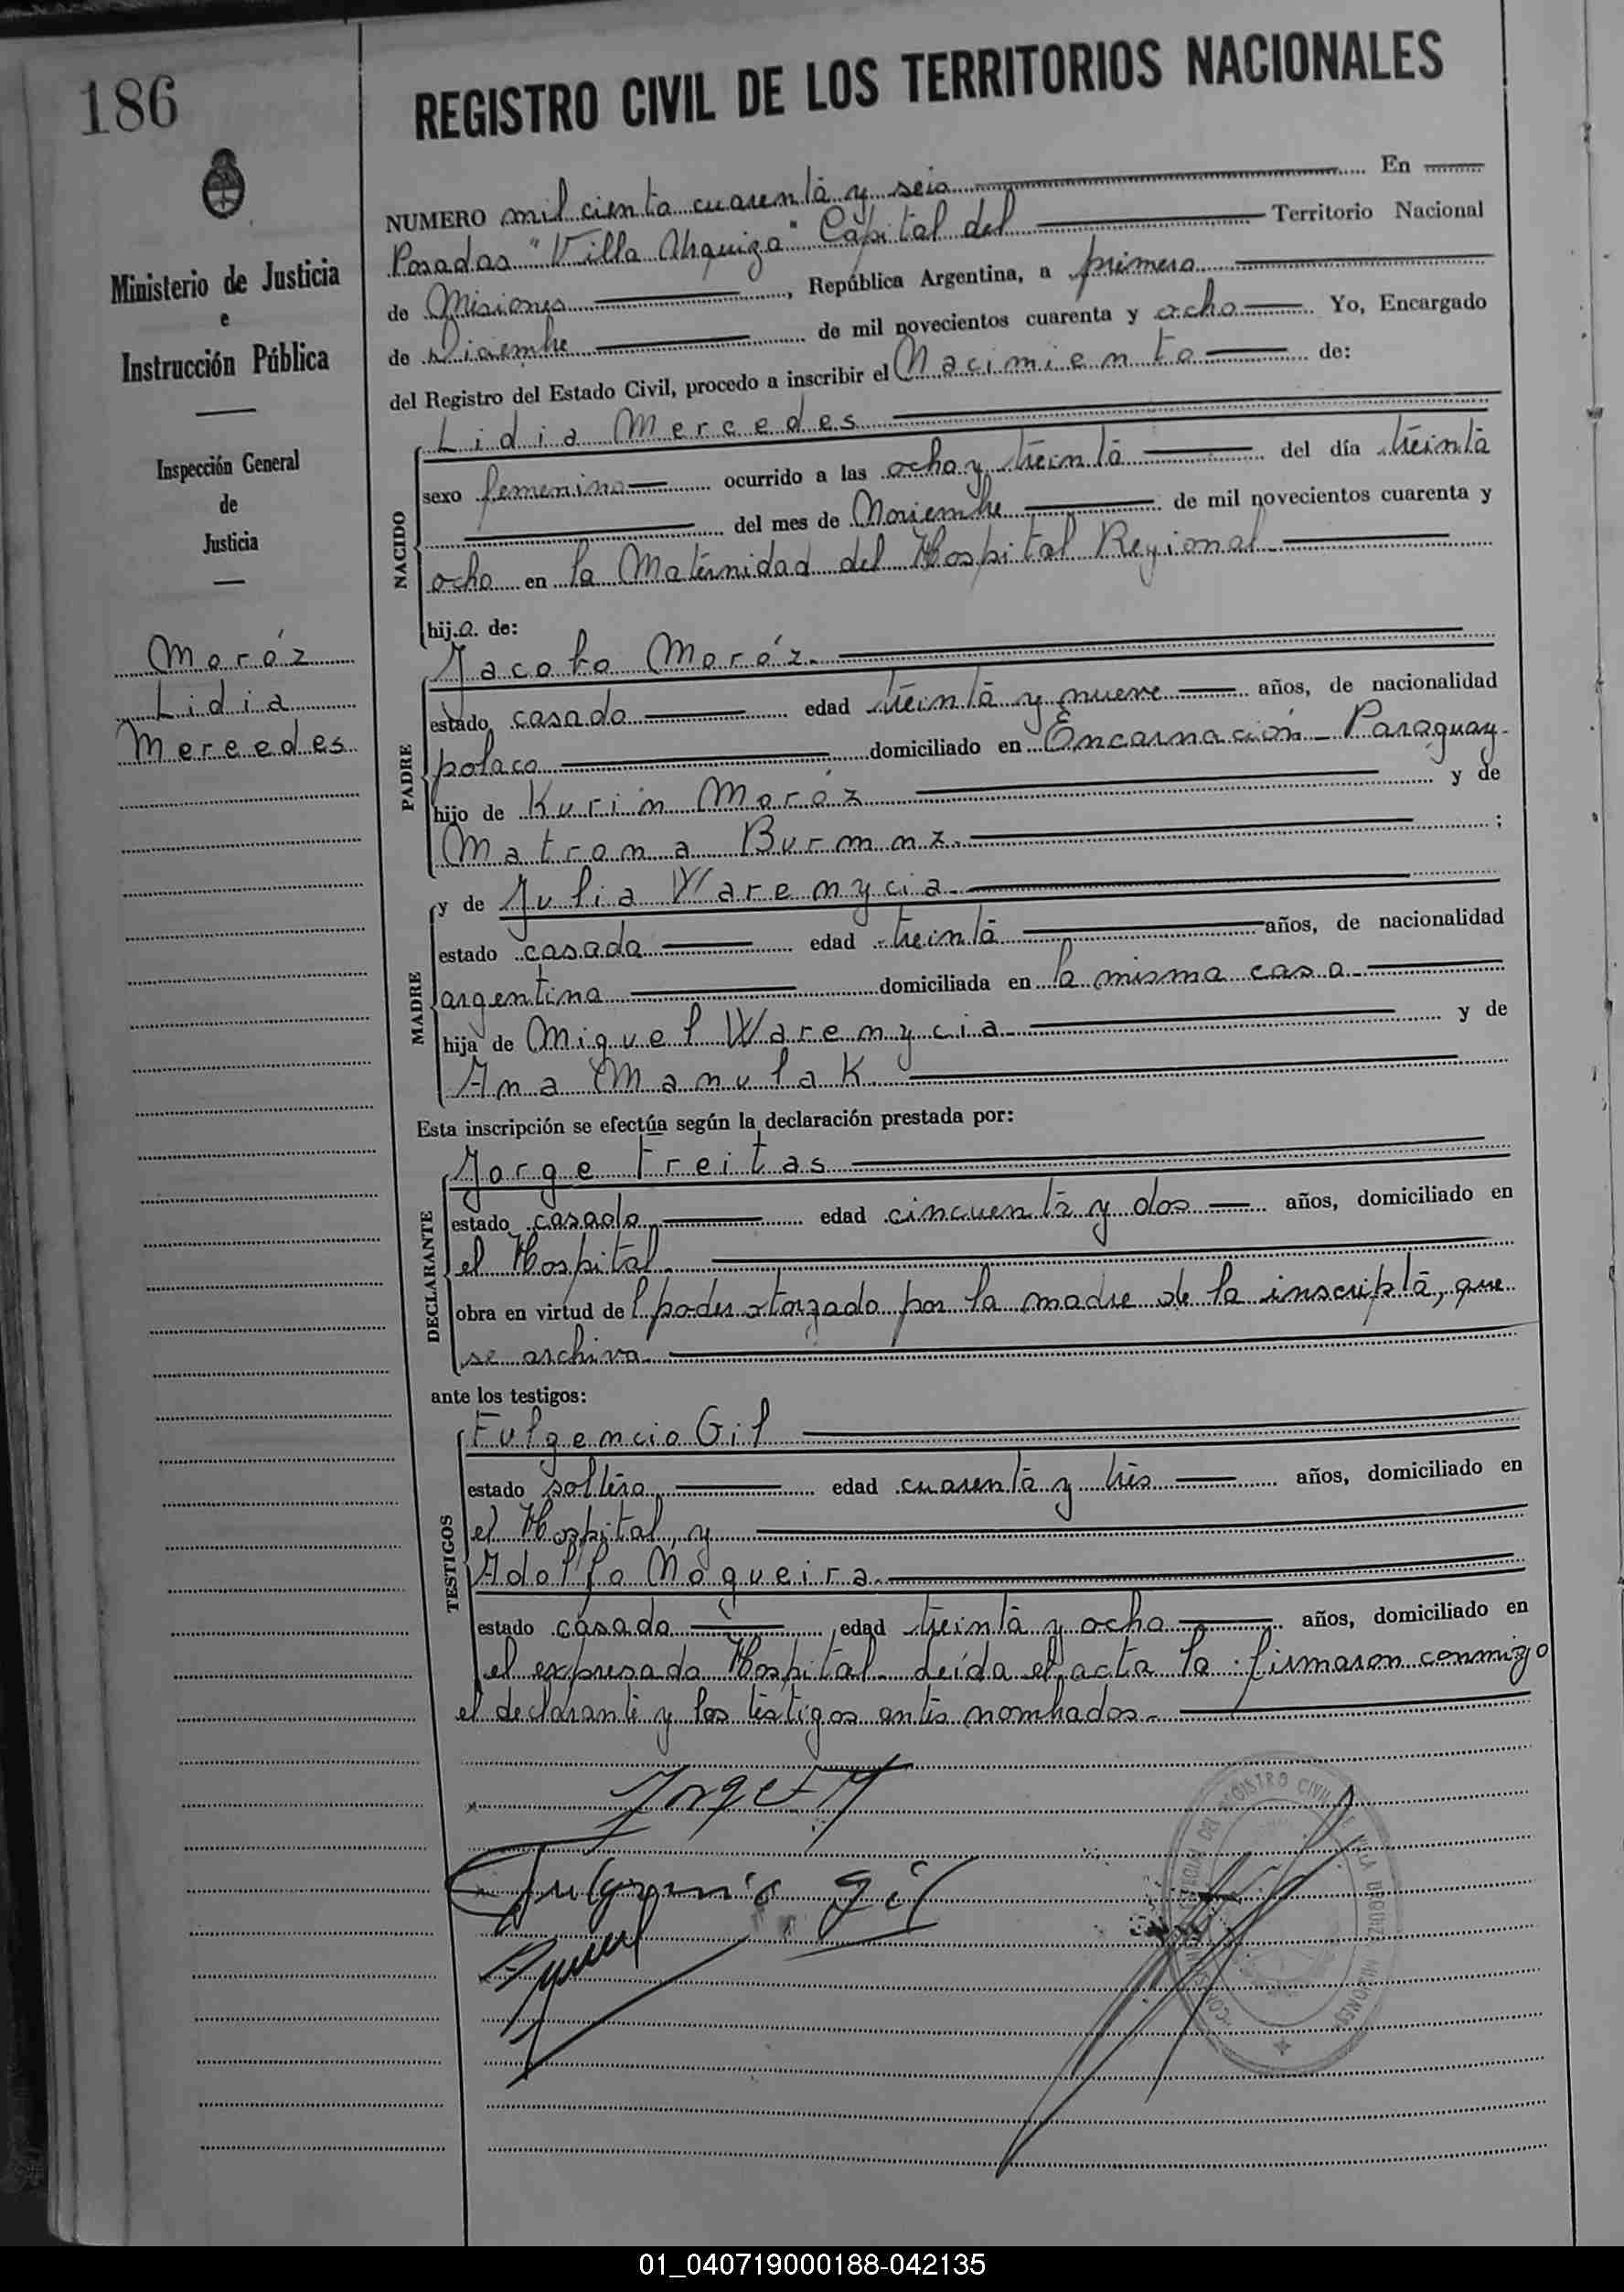 186
REGISTRO CIVIL DE LOS TERRITORIOS NACIONALES
Ministerio de Justicia
e
Instrucción Pública
Inspección General
de
Justicia
Moróz
Lidia
Mercedes
NUMERO mil ciento cuarenta y seis En
Posadas "Villa Urquiza" Capital del Territorio Nacional
de Misiones, República Argentina, a primero
de Diciembre de mil novecientos cuarenta y ocho Yo, Encargado
del Registro del Estado Civil, procedo a inscribir el Nacimiento de:
NACIDO
Lidia Mercedes
sexo femenino ocurrido a las ocho y treinta del día treinta
del mes de Noviembre de mil novecientos cuarenta y
ocho en la Maternidad del Hospital Regional
hija de:
PADRE
Jacobo Moróz.
estado casado edad treinta y nueve años, de nacionalidad
polaca domiciliado en Encarnación - Paraguay-
hijo de Kurin Moróz y de
Matrona Burmnz. ;
MADRE
y de Julia Warenycia.
estado casada edad treinta años, de nacionalidad
argentina domiciliada en la misma casa.
hija de Miguel Warenycia y de
Ana Manulak.
Esta inscripción se efectúa según la declaración prestada por:
DECLARANTE
Jorge Freitas
estado casado edad cincuenta y dos años, domiciliado en
el Hospital.
obra en virtud del poder otorgado por la madre de la inscripta, que
se archiva.
ante los testigos:
TESTIGOS
Fulgencio Gil
estado soltero edad cuarenta y tres años, domiciliado en
el Hospital, y
Adolfo Nogueira.
estado casado edad treinta y ocho años, domiciliado en
el expresado Hospital. Leída el acta la firmaron conmigo
el declarante y los testigos antes nombrados.-
Fulgencio Gil
REGISTRO CIVIL DE VILLA URQUIZA MISIONES
01_040719000188-042135